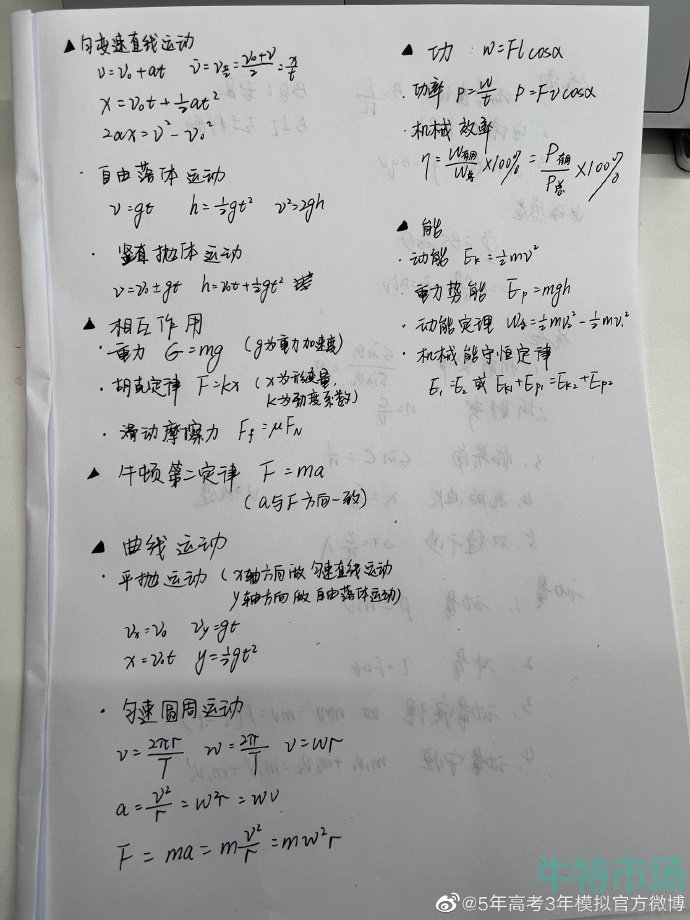 ▲匀变速直线运动
v=v₀+at v̄=v_{t/2}=(v₀+v)/2=x/t
x=v₀t+½at²
2ax=v²-v₀²
· 自由落体运动
v=gt h=½gt² v²=2gh
· 竖直抛体运动
v=v₀±gt h=v₀t±½gt²
▲ 相互作用
· 重力 G=mg (g为重力加速度)
· 胡克定律 F=kx (x为形变量,
k为劲度系数)
· 滑动摩擦力 F_f=μF_N
▲ 牛顿第二定律 F=ma
(a与F方向一致)
▲ 曲线运动
· 平抛运动 (x轴方向做匀速直线运动
y轴方向做自由落体运动)
vₓ=v₀ v_y=gt
x=v₀t y=½gt²
· 匀速圆周运动
v=2πr/T w=2π/T v=wr
a=v²/r=w²r=wv
F=ma=m v²/r=mw²r
▲ 功: w=Flcosα
· 功率 P=w/t P=Fvcosα
· 机械效率
η=W有用/W总×100%=P有用/P总×100%
▲ 能
· 动能 E_k=½mv²
· 重力势能 E_p=mgh
· 动能定理 W合=½mv₂²-½mv₁²
· 机械能守恒定律
E₁=E₂ 或 E_{k1}+E_{p1}=E_{k2}+E_{p2}
牛特市场
@5年高考3年模拟官方微博